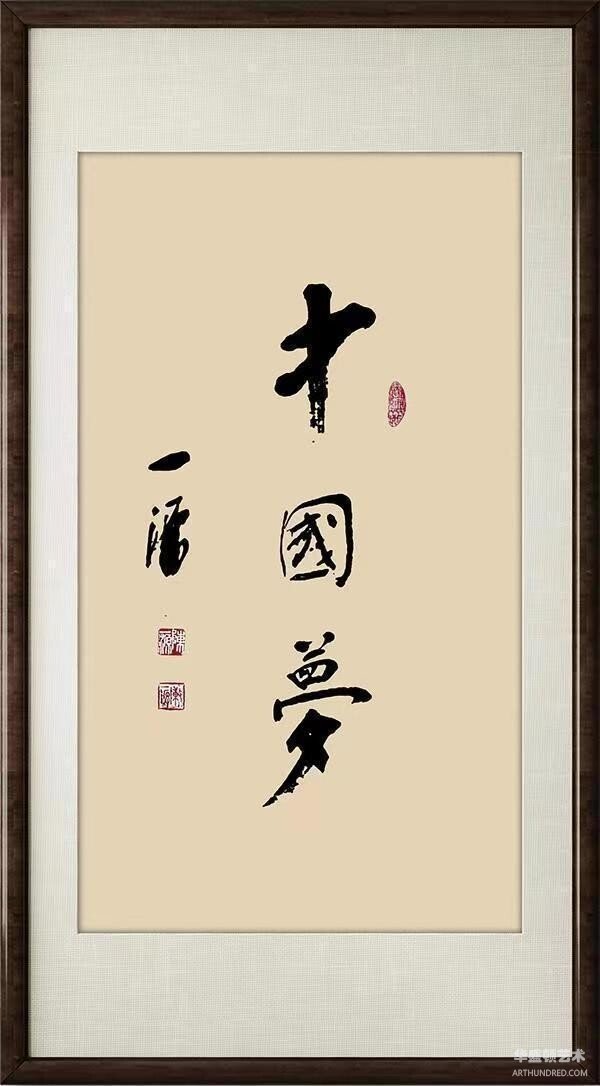 中國夢
一
华盛顿艺术
ARTHUNDRED.COM